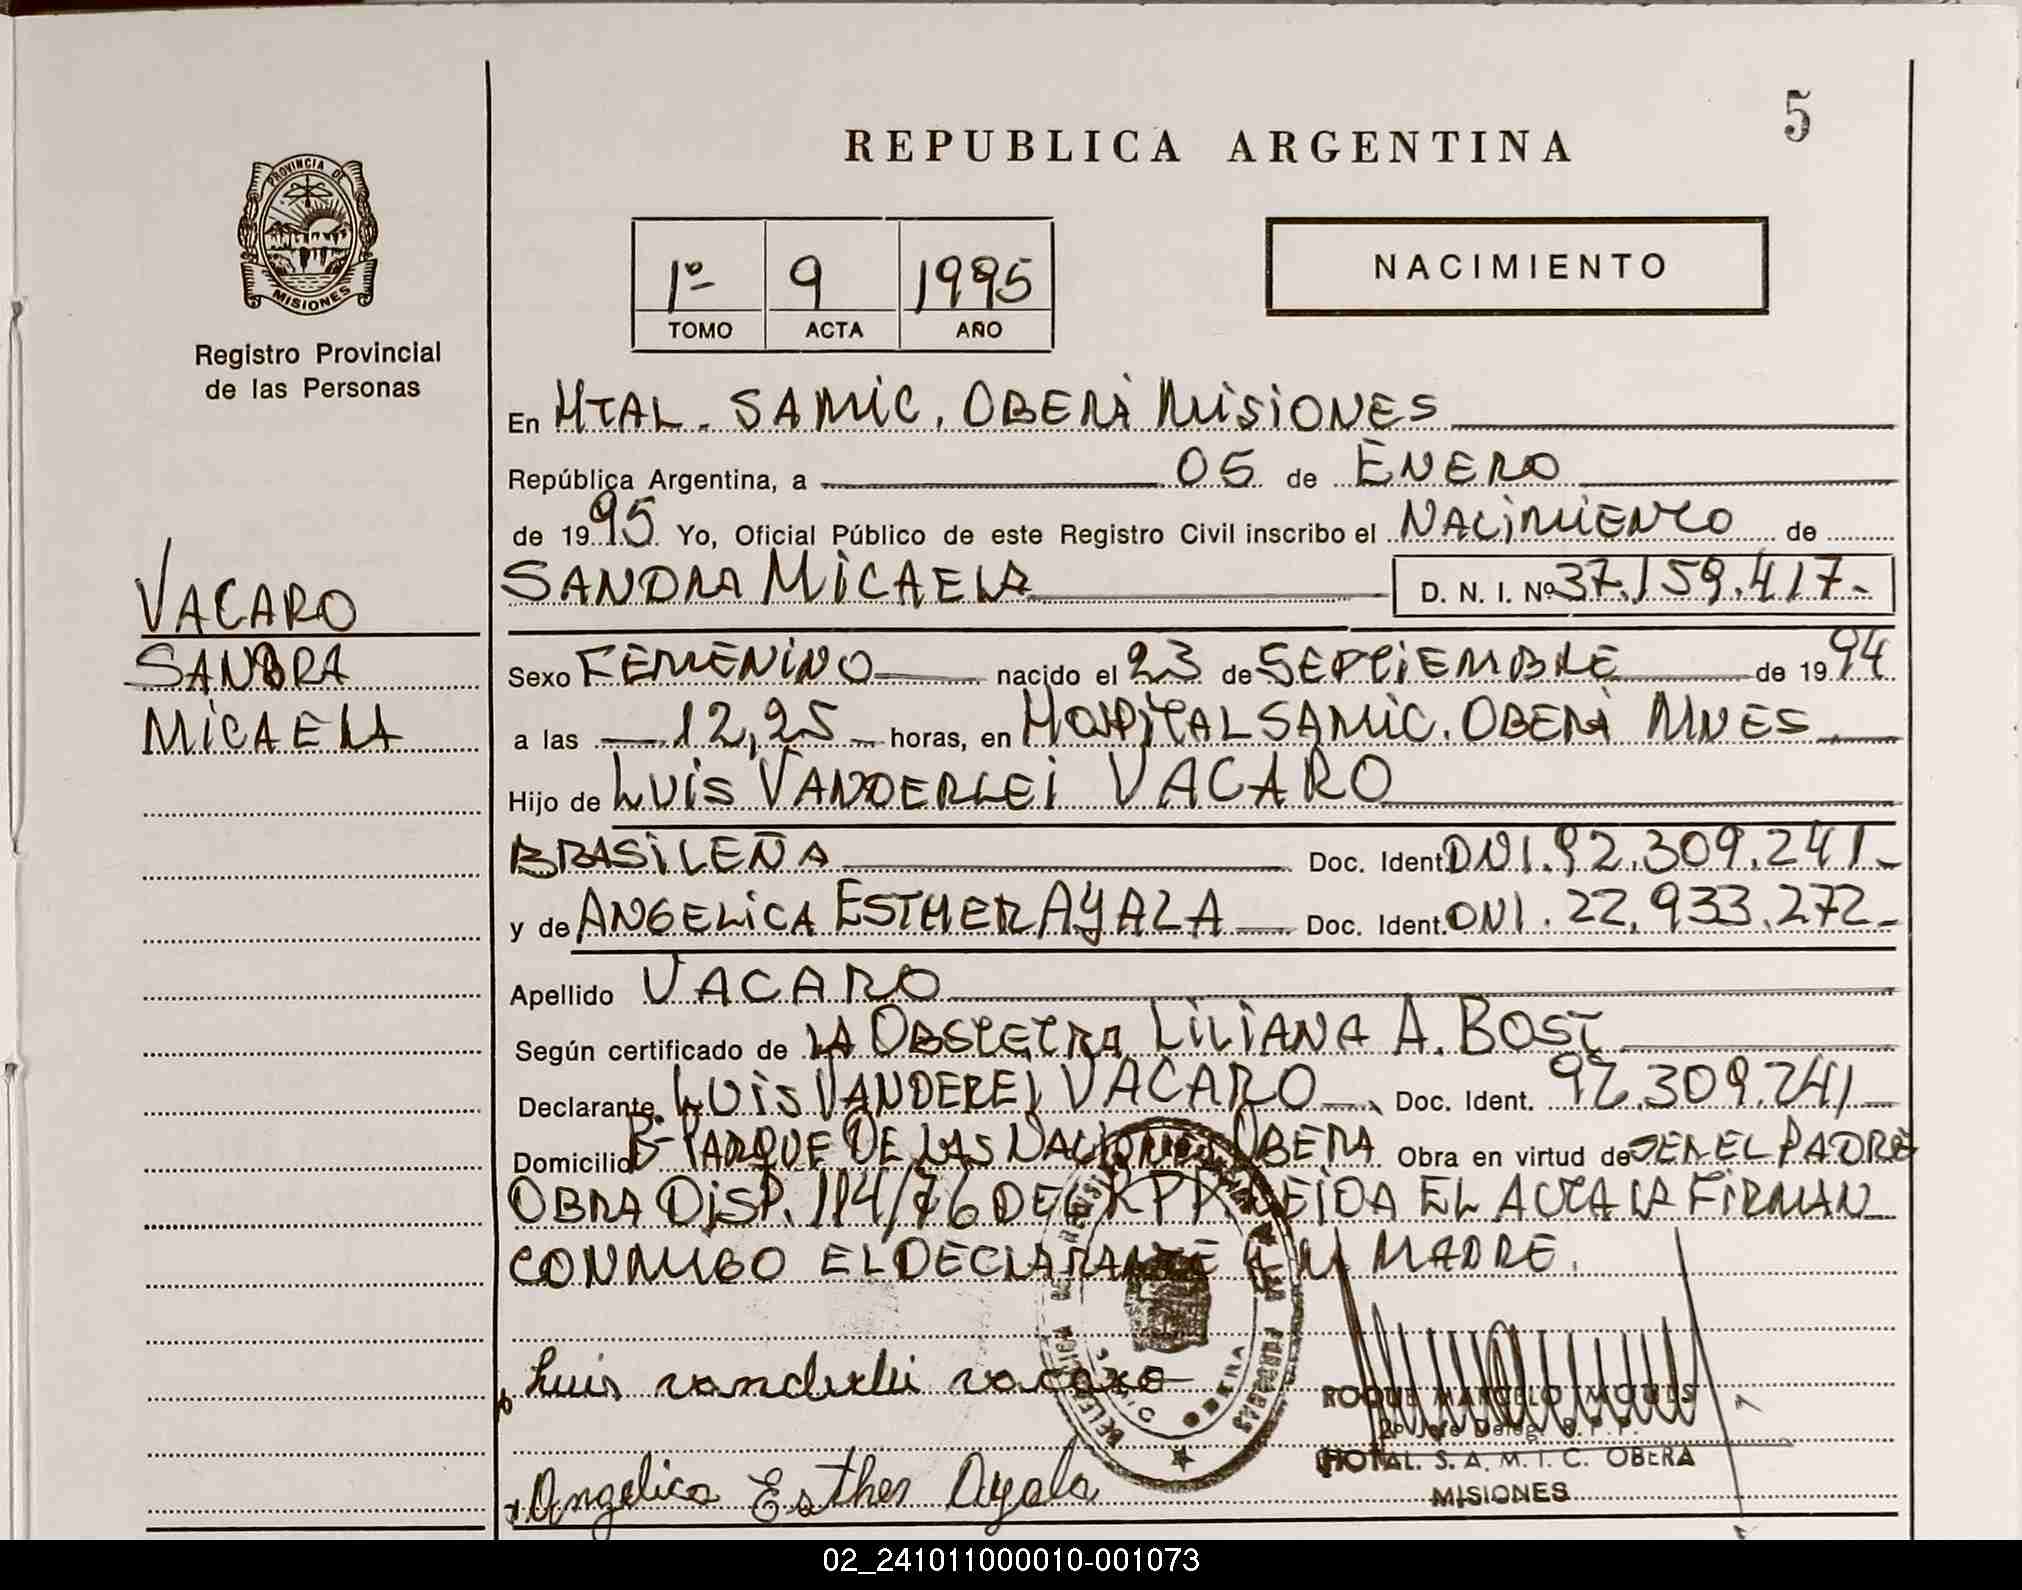 5
REPUBLICA ARGENTINA
PROVINCIA DE
MISIONES
Registro Provincial
de las Personas
1º 9 1995
TOMO ACTA AÑO
NACIMIENTO
En HTAL. SAMIC. OBERÁ MISIONES
República Argentina, a 05 de ENERO
de 1995 Yo, Oficial Público de este Registro Civil inscribo el NACIMIENTO de
SANDRA MICAELA D. N. I. Nº 37.159.417.-
VACARO
SANDRA
MICAELA
Sexo FEMENINO nacido el 23 de SEPTIEMBRE de 1994
a las 12,25 horas, en HOSPITAL SAMIC. OBERÁ MNES
Hijo de LUIS VANDERLEI VACARO
BRASILEÑA Doc. Ident. DNI. 92.309.241.-
y de ANGELICA ESTHER AYALA Doc. Ident. DNI. 22.933.272.-
Apellido VACARO
Según certificado de LA OBSTETRA LILIANA A. BOST
Declarante LUIS VANDEREI VACARO Doc. Ident. 92.309.241
Domicilio Bº PARQUE DE LAS NACIONES OBERA Obra en virtud de SER EL PADRE
OBRA DISP. 114/76 DEL RPP LEIDA EL ACTA LA FIRMAN
CONMIGO EL DECLARANTE Y LA MADRE.
Luis vanderlei vacaro
Angelica Esther Ayala
OBERA
ROQUE MARCELO
2º Jefe Deleg. R.P.P.
HOTAL. S. A. M. I. C. OBERA
MISIONES
02_241011000010-001073